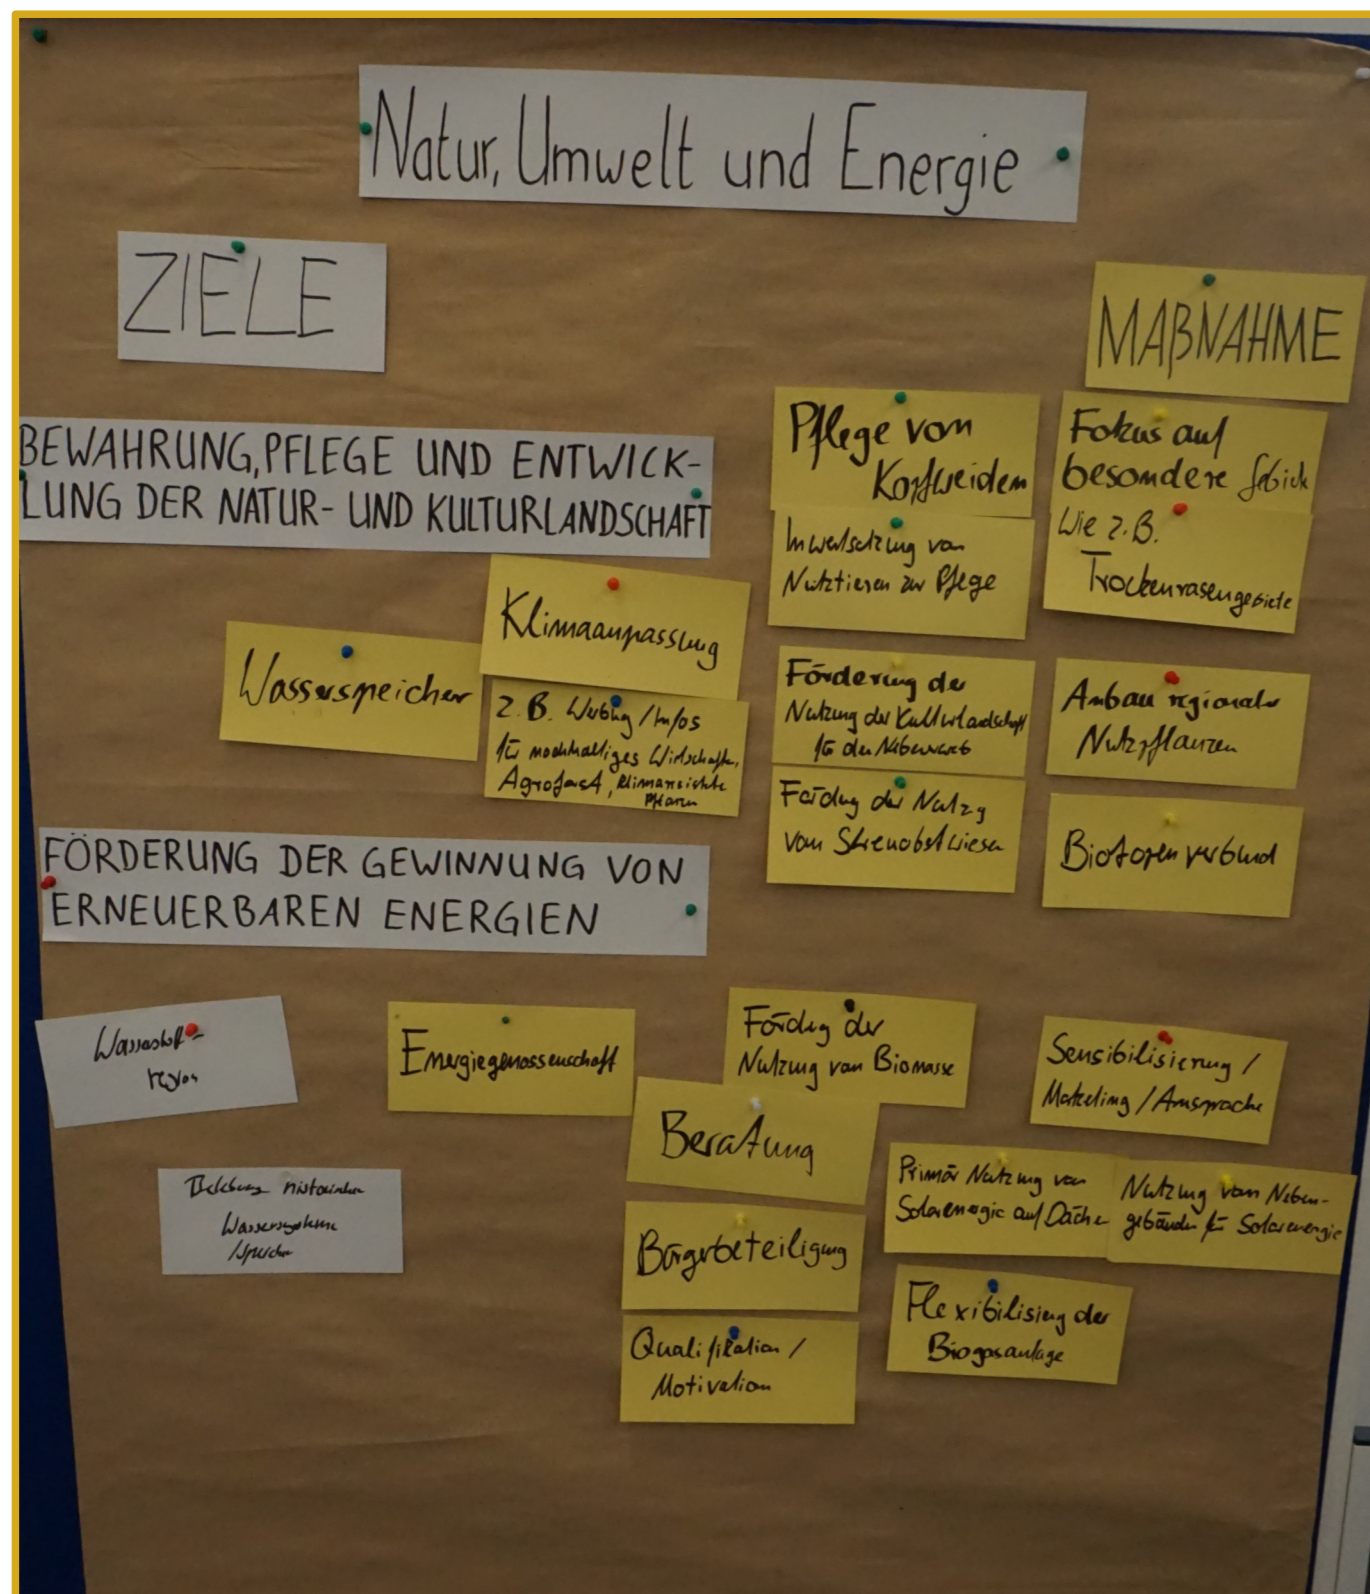 Natur, Umwelt und Energie
ZIELE
MAßNAHME
BEWAHRUNG, PFLEGE UND ENTWICK-
LUNG DER NATUR- UND KULTURLANDSCHAFT
Pflege von
Kopfweiden
Fokus auf
besondere Gebiete
Inwertsetzung von
Nutztieren zur Pflege
Wie z.B.
Trockenrasengebiete
Klimaanpassung
Wasserspeicher
z.B. Werbung / Infos
für nachhaltiges Wirtschaften,
Agroforst, klimaresistente
Pflanzen
Förderung der
Nutzung der Kulturlandschaft
für den Nebenerwerb
Anbau regionaler
Nutzpflanzen
Förderung der Nutzg
von Streuobstwiesen
Biotopenverbund
FÖRDERUNG DER GEWINNUNG VON
ERNEUERBAREN ENERGIEN
Wasserstoff-
region
Energiegenossenschaft
Förderung der
Nutzung von Biomasse
Sensibilisierung /
Marketing / Ansprache
Beratung
Primär Nutzung von
Solarenergie auf Dächer
Nutzung von Neben-
gebäuden für Solarenergie
Belebung historischer
Wassersysteme
/speicher
Bürgerbeteiligung
Flexibilisierung der
Biogasanlage
Qualifikation /
Motivation